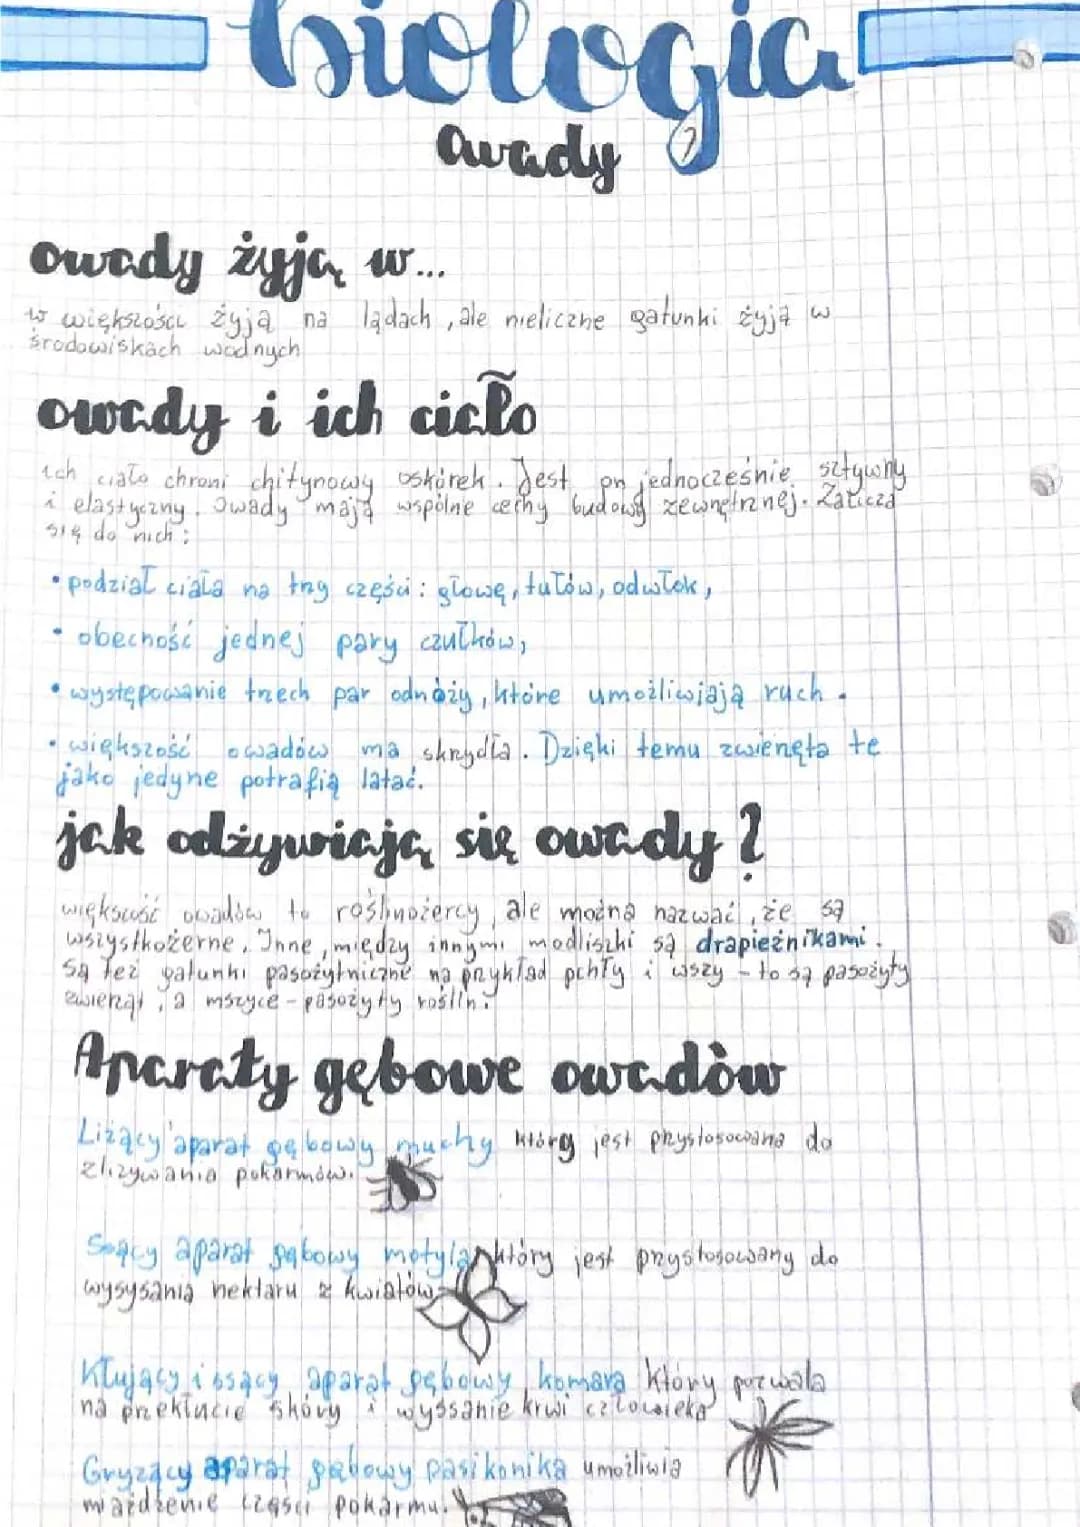 biologia
Owady
owady żyją w...
w większości żyją na lądach, ale nieliczne gatunki żyją w
środowiskach wodnych
owady i ich ciało
ich ciało chroni chitynowy oskórek. Jest on jednocześnie sztywny
i elastyczny. Owady mają wspólne cechy budowy zewnętrznej. Zalicza
się do nich:
• podział ciała na trzy części: głowę, tułów, odwłok,
• obecność jednej pary czułków,
• występowanie trzech par odnóży, które umożliwiają ruch.
• większość owadów ma skrzydła. Dzięki temu zwierzęta te
jako jedyne potrafią latać.
jak odżywiają się owady?
większość owadów to roślinożercy, ale można nazwać, że są
wszystkożerne. Inne, między innymi modliszki są drapieżnikami.
Są też gatunki pasożytnicze na przykład pchły i wszy - to są pasożyty
zwierząt, a mszyce - pasożyty roślin.
Aparaty gębowe owadòw
Liżący aparat gębowy muchy który jest przystosowana do
zlizywania pokarmów.
Ssący aparat gębowy motyla który jest przystosowany do
wysysania nektaru z kwiatów
Kłujący i ssący aparat gębowy komara który pozwala
na przekłucie skóry i wyssanie krwi człowieka
Gryzący aparat gębowy pasikonika umożliwia
miażdżenie części pokarmu.